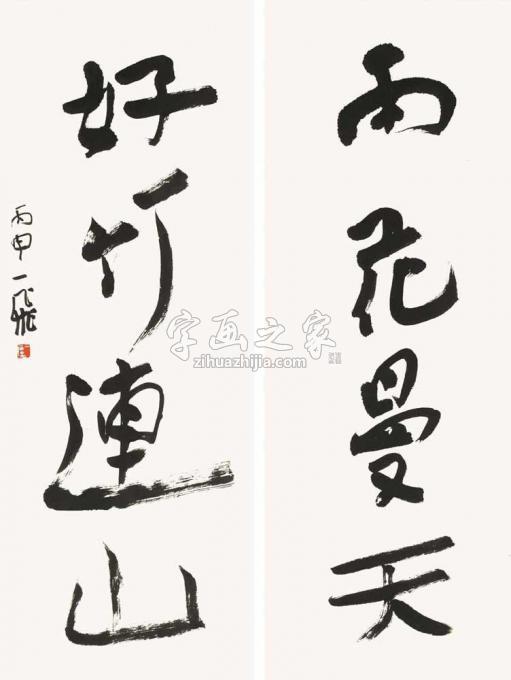 雨花曼天
好竹連山
丙申一飛
字画之家
zihuazhijia.com